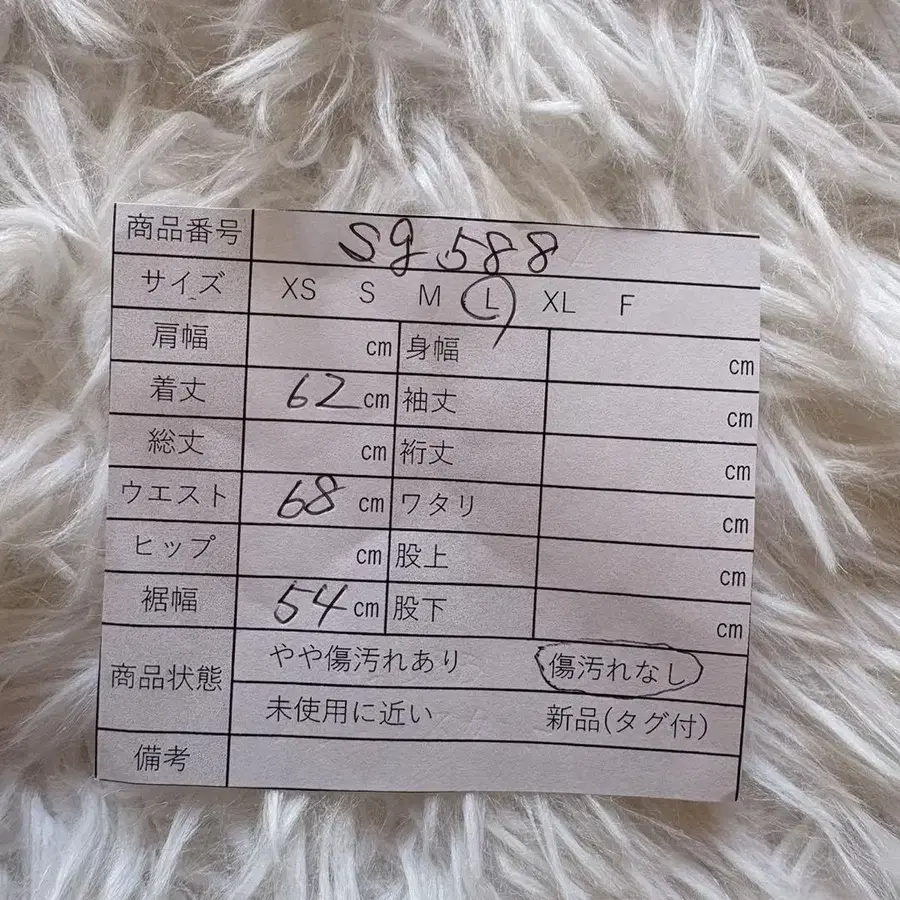 商品番号 sg588
サイズ XS S M L XL F
肩幅 cm 身幅 cm
着丈 62 cm 袖丈 cm
総丈 cm 裄丈 cm
ウエスト 68 cm ワタリ cm
ヒップ cm 股上 cm
裾幅 54 cm 股下 cm
商品状態 やや傷汚れあり 傷汚れなし
未使用に近い 新品(タグ付)
備考